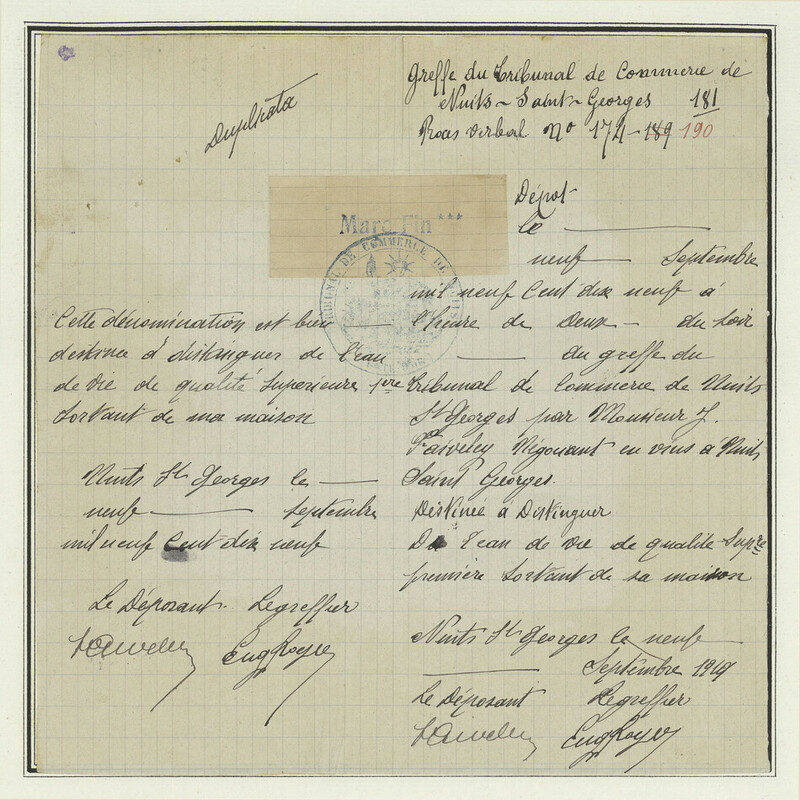 Duplicata
Greffe du Tribunal de Commerce de
Nuits-Saint-Georges 181
Procès verbal No 174 - 189 190
Marc Fin ***
TRIBUNAL DE COMMERCE DE NUITS
Cette dénomination est bien
destinée à distinguer de l'eau
de vie de qualité supérieure 1ère
sortant de ma maison
Nuits St Georges le
neuf septembre
mil neuf Cent dix neuf
Le Déposant Le greffier
Faiveley Eug Royer
Dépôt
le
neuf Septembre
mil neuf Cent dix neuf à
l'heure de Deux - du soir
au greffe du
Tribunal de Commerce de Nuits
St Georges par Monsieur J.
Faiveley Négociant en vins à Nuits
Saint Georges.
Destinée à Distinguer
De l'eau de vie de qualité Supre
première sortant de sa maison
Nuits St Georges le neuf
Septembre 1919
Le Déposant Le greffier
Faiveley Eug Royer